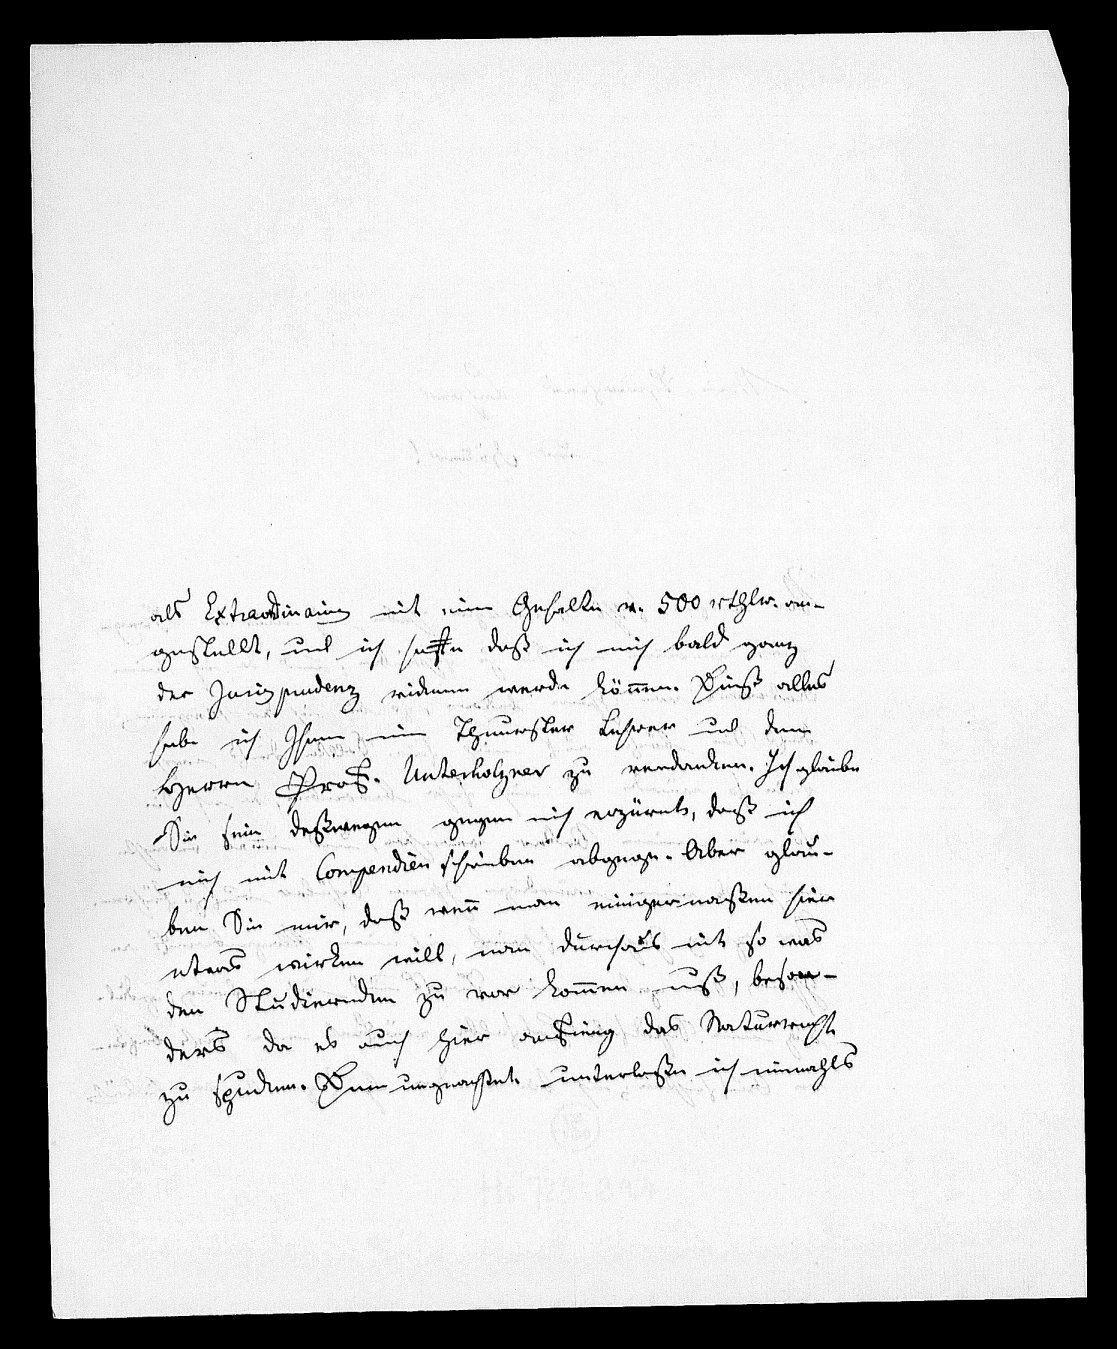 als Extraordinarius mit einem Gehalte v. 500 rthlr. an-
gestellt, und ich hoffe daß ich mich bald ganz
der Jurisprudenz widmen werde können. Dieß alles
habe ich Ihnen mein Theuerster Lehrer und dem
Herrn Prof. Unterholzner zu verdanken. Ich glaube
Sie sein deßwegen gegen mich erzürnt, daß ich
mich mit Compendien schreiben abgege. Aber glau-
ben Sie mir, daß wenn man einigermaßen hier
etwas wirken will, man durchaus mit so was
den Studierenden zu vor kommen muß, beson-
ders da es auch hier anfieng das Naturrecht
zu spucken. Dem ungeachtet unterlaße ich niemahls